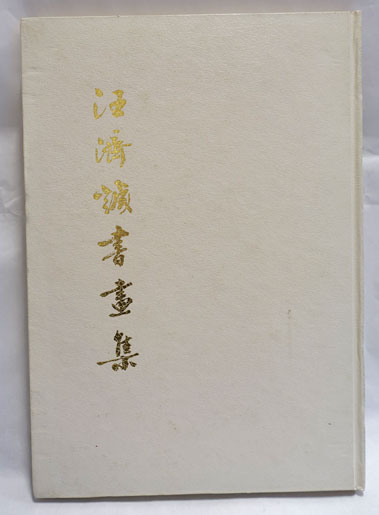 汪濟書畫集